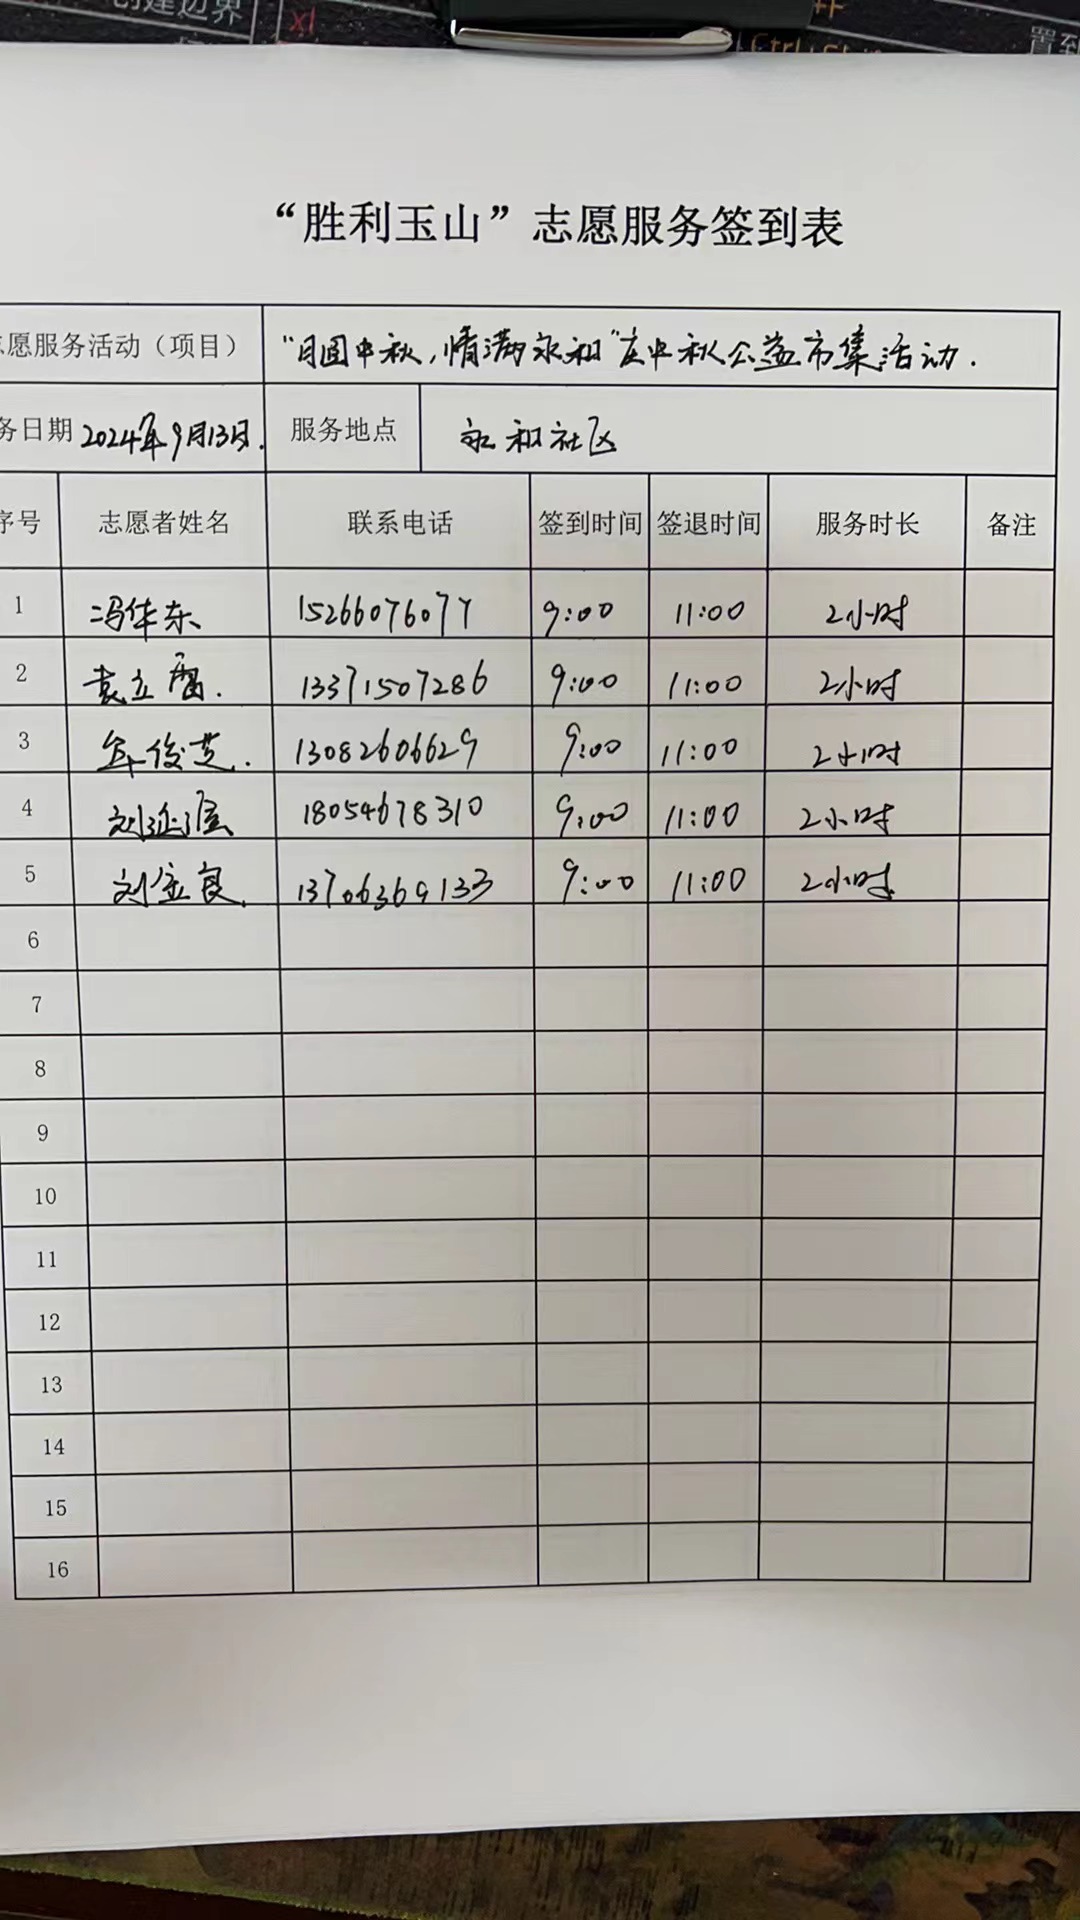 创建边界
Ctrl+Shift
置到
“胜利玉山”志愿服务签到表
志愿服务活动（项目） “月圆中秋，情满永和”庆中秋公益市集活动.
务日期 2024年9月13日. 服务地点 永和社区
序号 志愿者姓名 联系电话 签到时间 签退时间 服务时长 备注
1 冯华东 15266076077 9:00 11:00 2小时
2 袁立 13371507286 9:00 11:00 2小时
3 俊芝. 13082606629 9:00 11:00 2小时
4 刘 18054678310 9:00 11:00 2小时
5 刘金良. 13706369133 9:00 11:00 2小时
6
7
8
9
10
11
12
13
14
15
16